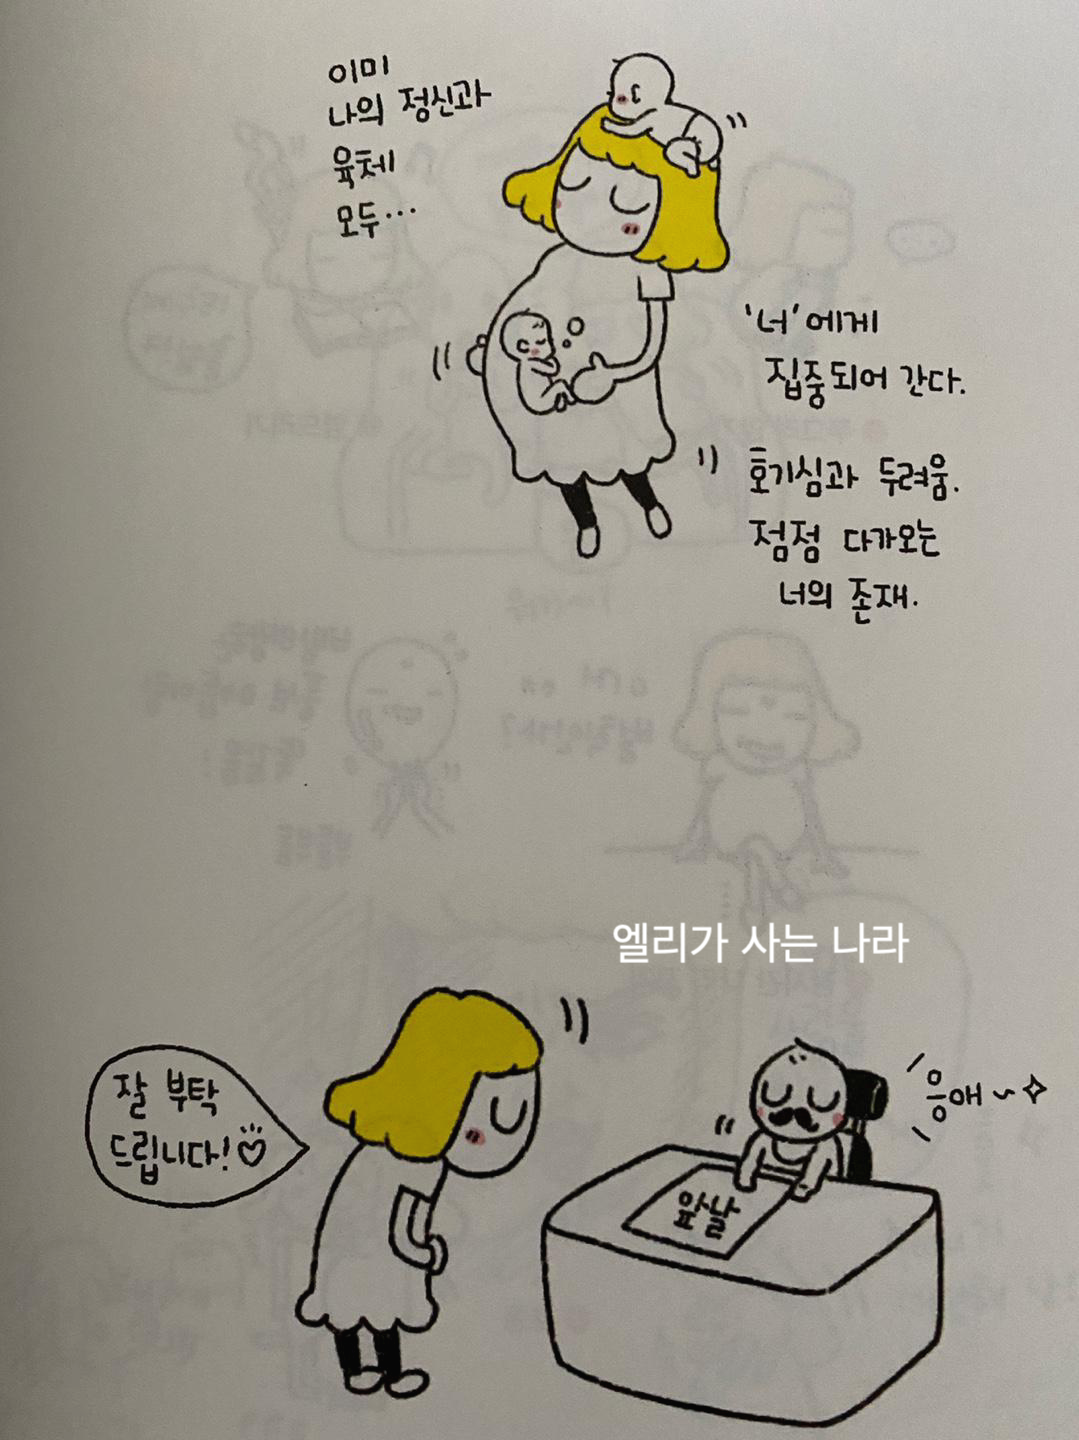 이미
나의 정신과
육체
모두…
'너'에게
집중되어 간다.
호기심과 두려움.
점점 다가오는
너의 존재.
엘리가 사는 나라
잘 부탁
드립니다!♡
응애~✧
앞날